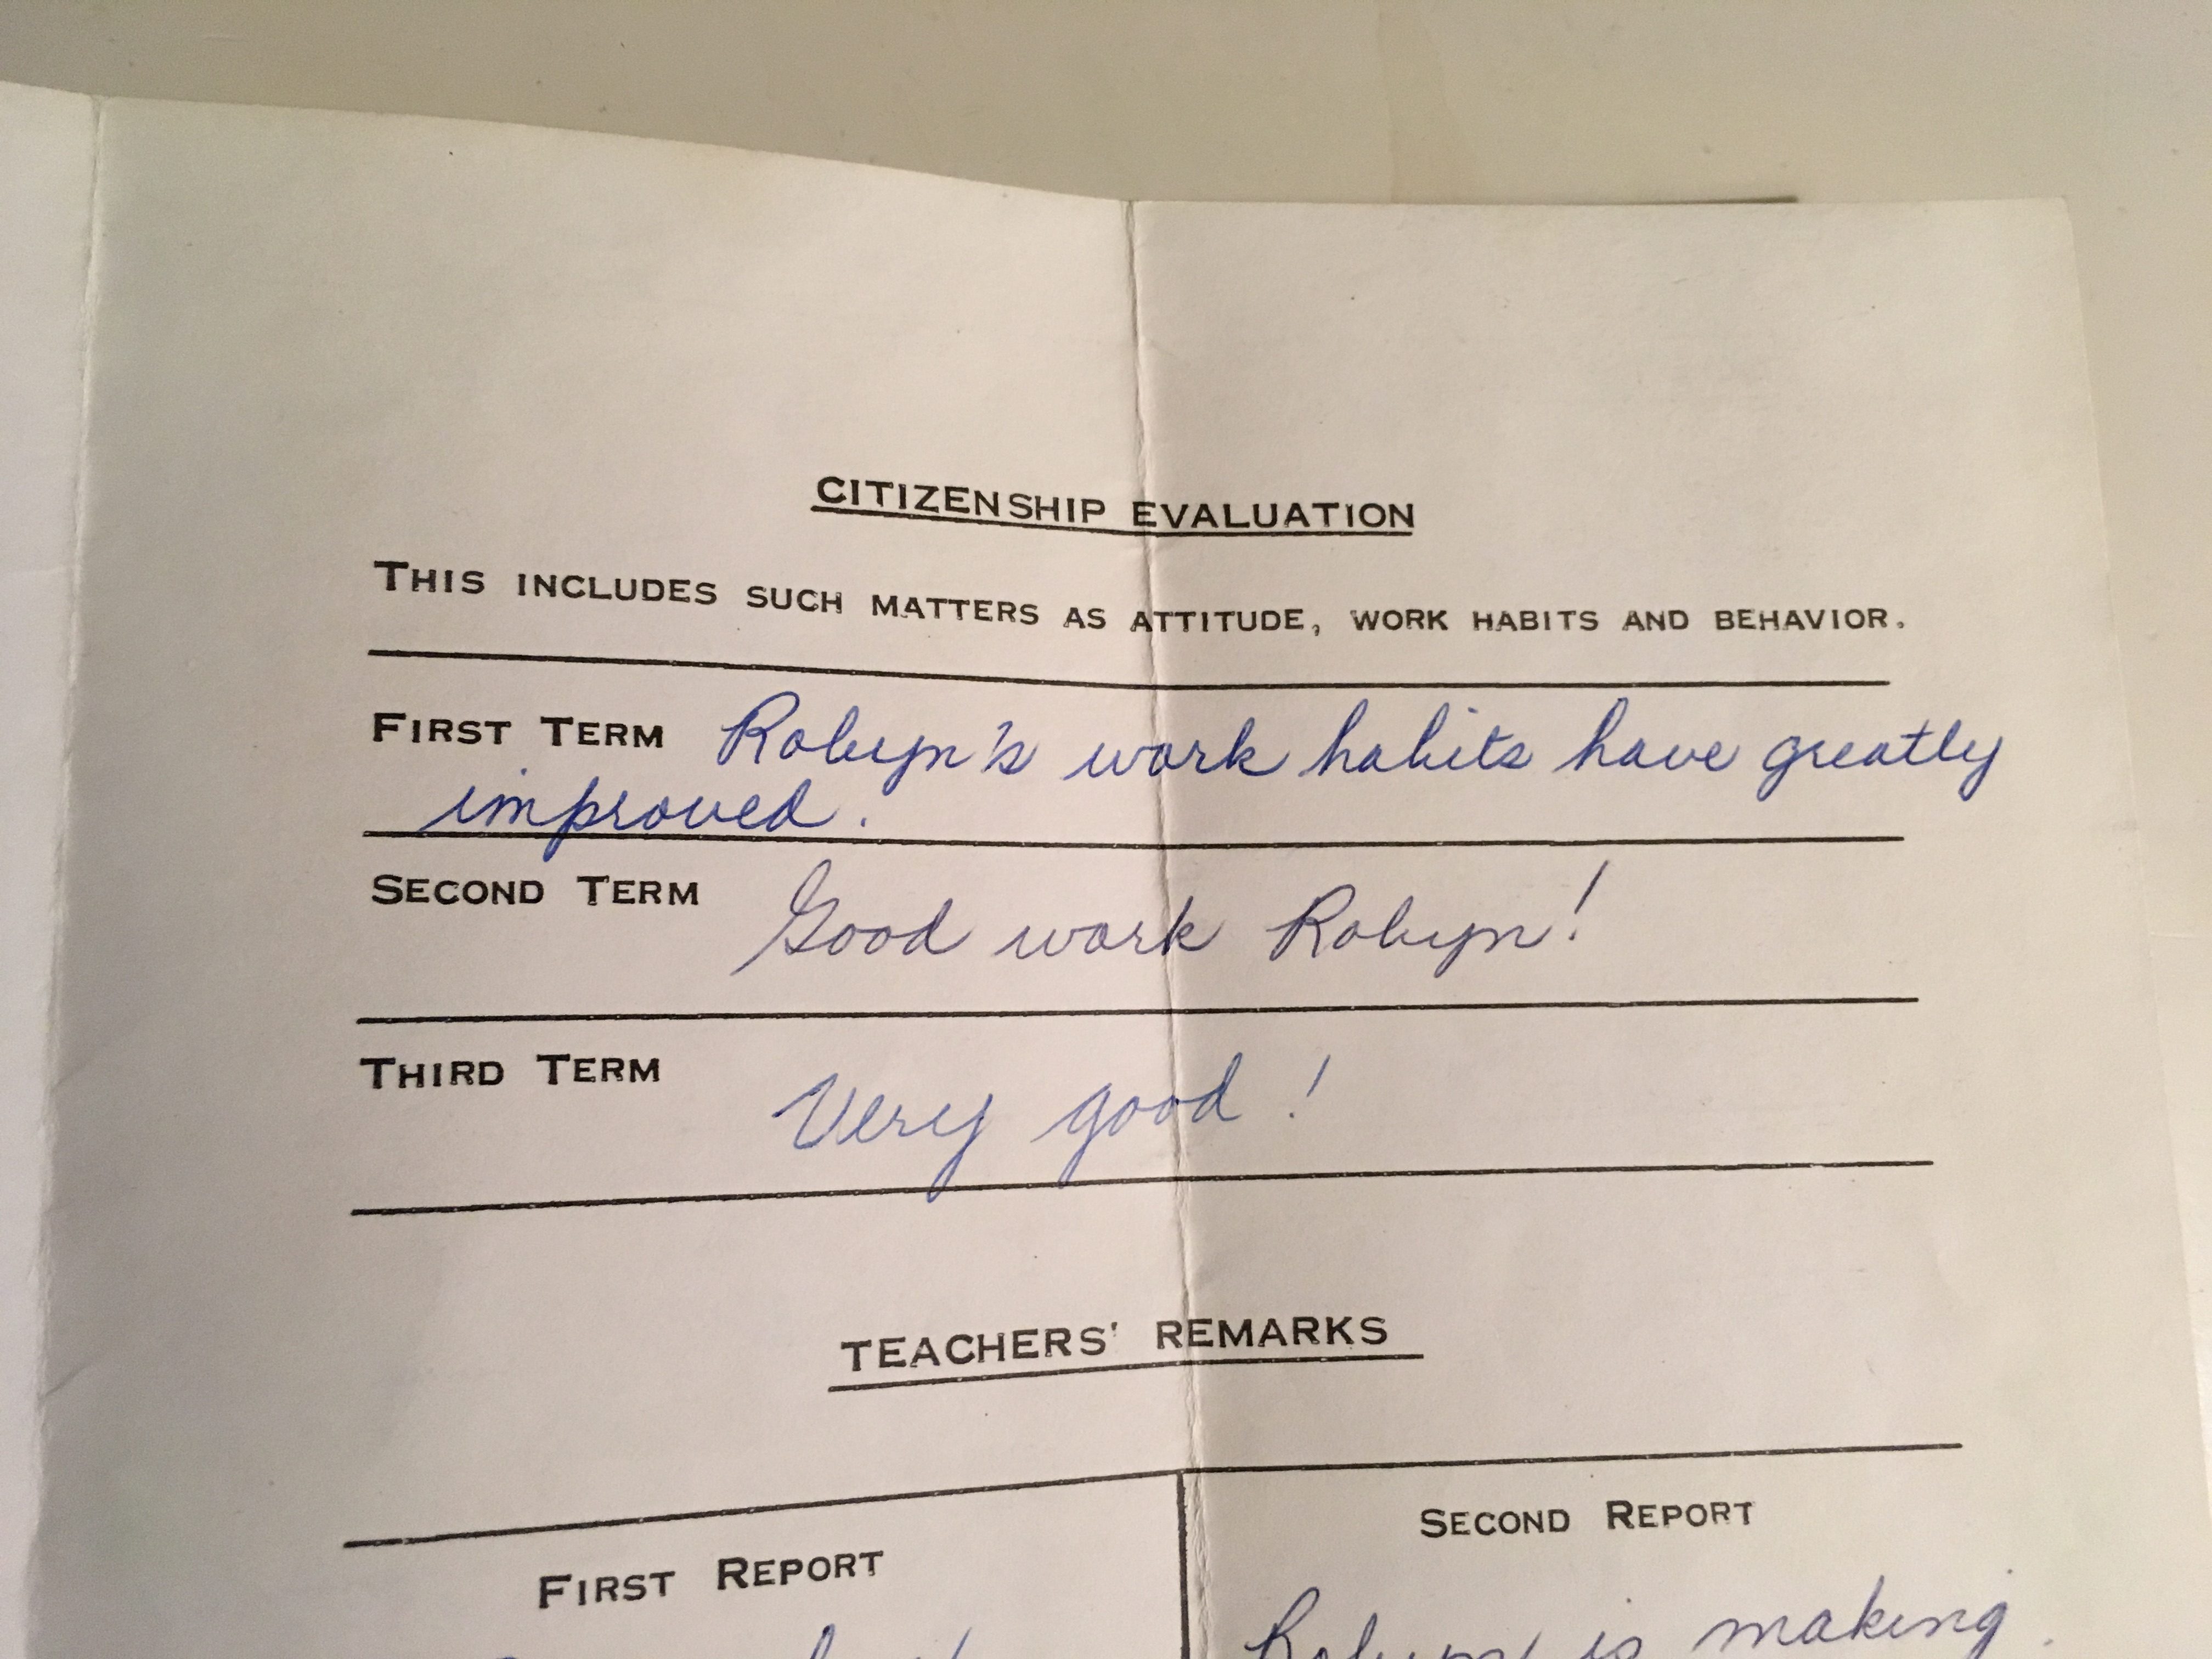 CITIZENSHIP EVALUATION
THIS INCLUDES SUCH MATTERS AS ATTITUDE, WORK HABITS AND BEHAVIOR.
FIRST TERM Robyn's work habits have greatly
improved.
SECOND TERM Good work Robyn!
THIRD TERM Very good!
TEACHERS' REMARKS
FIRST REPORT
SECOND REPORT
Robyn is making